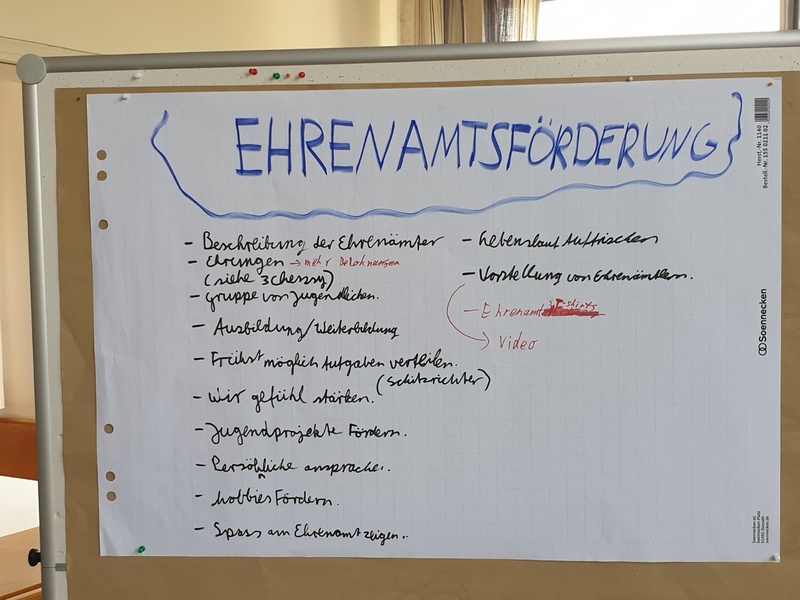 EHRENAMTSFÖRDERUNG
- Beschreibung der Ehrenämter
- Ehrungen → mehr Belohnungen
(siehe 3chessy)
- Gruppe von Jugendlichen.
- Ausbildung/Weiterbildung
- Frühst möglich Aufgaben verteilen.
(Schitzrichter)
- Wir gefühl stärken.
- Jugendprojekte Fördern.
- Persöhnliche ansprache.
- hobbies Fördern.
- Spass am Ehrenamt zeigen..
- Lebenslauf Auffrischen
- Vorstellung von Ehrenämtern.
- Ehrenamt T-Shirts
Video
Herst.-Nr. 1140
Bestell.-Nr. 155 0211 02
Soennecken
Soennecken eG
Soennecken-Platz
51491 Overath
soennecken.de